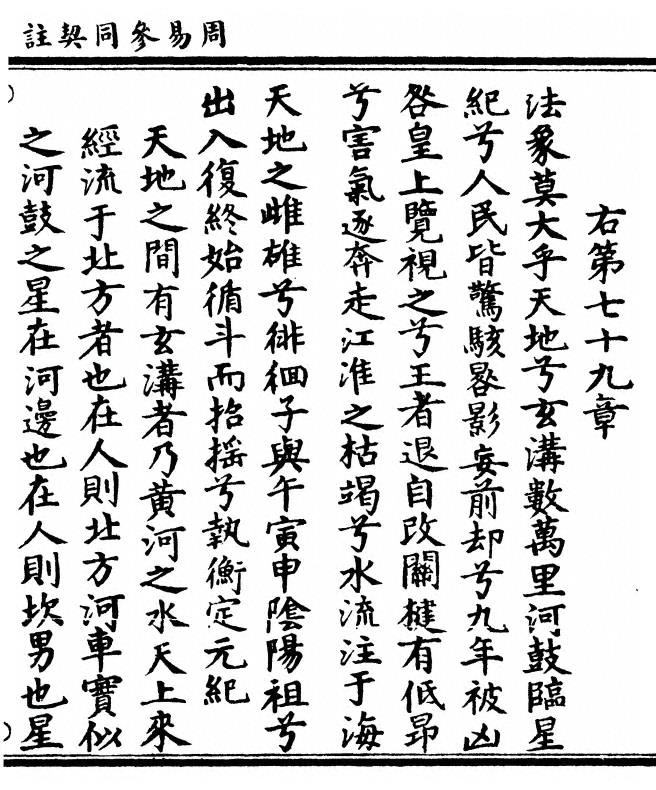 周易參同契註
右第七十九章
法象莫大乎天地兮玄溝數萬里河鼓臨星
紀兮人民皆驚駭晷影妄前却兮九年被凶
咎皇上覽視之兮王者退自改關楗有低昂
兮害氣遂奔走江淮之枯竭兮水流注于海
天地之雌雄兮徘徊子與午寅申陰陽祖兮
出入復終始循斗而招搖兮執衡定元紀
天地之間有玄溝者乃黃河之水天上來
經流于北方者也在人則北方河車寶似
之河鼓之星在河邊也在人則坎男也星